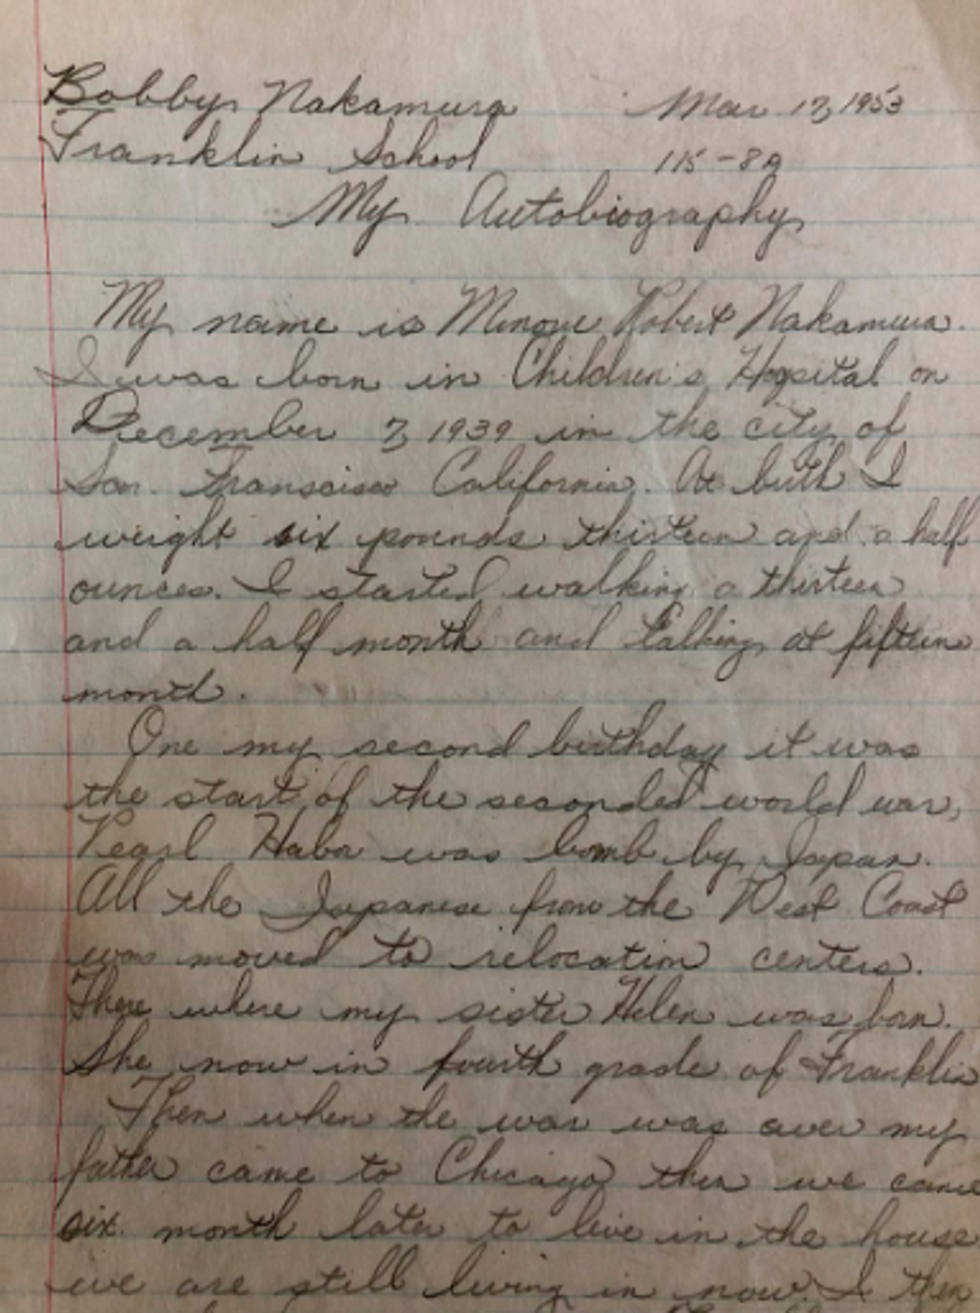 Bobby Nakamura Mar. 17, 1953
Franklin School 115-8A
My Autobiography
My name is Minoru Robert Nakamura.
I was born in Children's Hospital on
December 7, 1939 in the city of
San. Fransciso California. At birth I
weight six pounds thirteen and a half
ounces. I started walking a thirteen
and a half month and talking at fifteen
month.
One my second birthday it was
the start of the seconded world war,
Pearl Habor was bomb by Japan.
All the Japanese from the West Coast
was moved to relocation centers.
There where my sister Helen was born.
She now in fourth grade of Franklin
Then when the war was over my
father came to Chicago then we came
six month later to live in the house
we are still living in now. I then